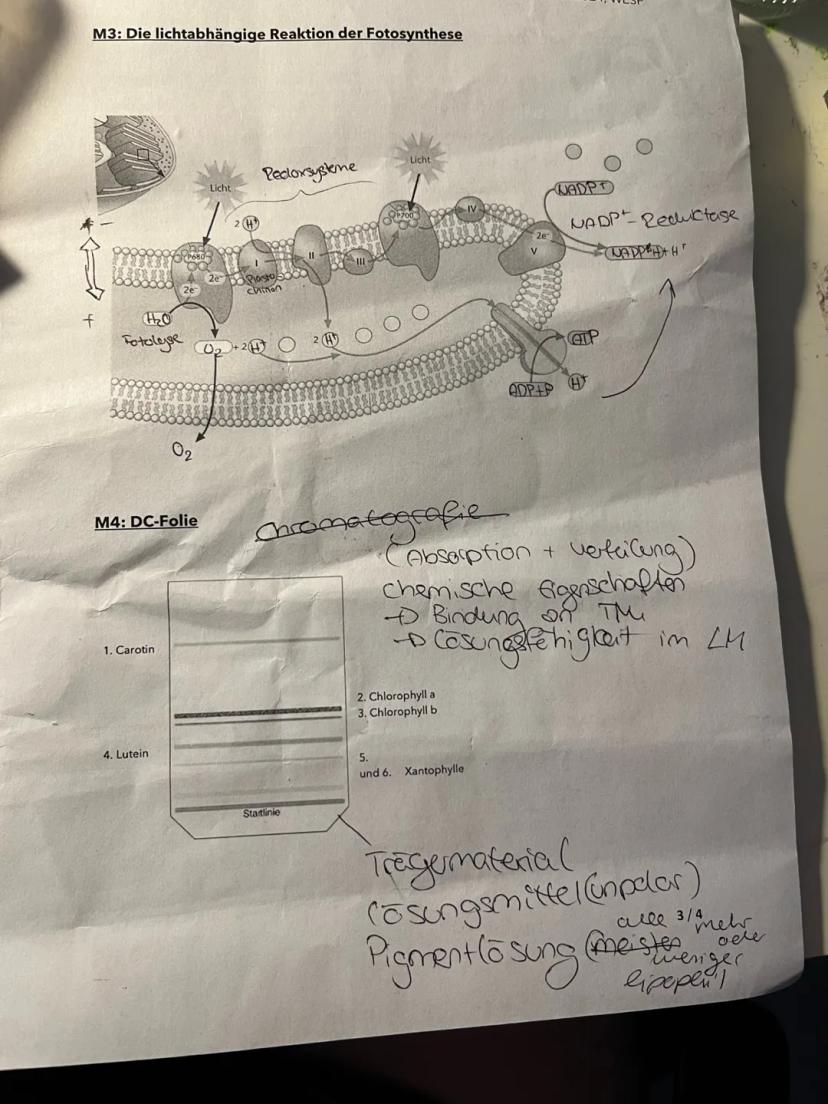 M3: Die lichtabhängige Reaktion der Fotosynthese
Licht
Redoxsysteme
Licht
2 H+
NADP+
NADP+-Reductase
P680
I
II
III
P700
IV
2e-
V
+ H+
2e-
2e-
Plasto
chinon
H2O
Fotolyse
O2 + 2 H+
2 H+
ATP
ADP+P
H+
O2
M4: DC-Folie
Chromatografie
(Absorption + Verteilung)
chemische Eigenschaften
→ Bindung an TM
→ Lösungsfähigkeit im LM
1. Carotin
2. Chlorophyll a
3. Chlorophyll b
4. Lutein
5.
und 6. Xantophylle
Startlinie
Trägermaterial
Lösungsmittel (unpolar)
Pigmentlösung (meisten
alle 3/4 mehr
oder
weniger